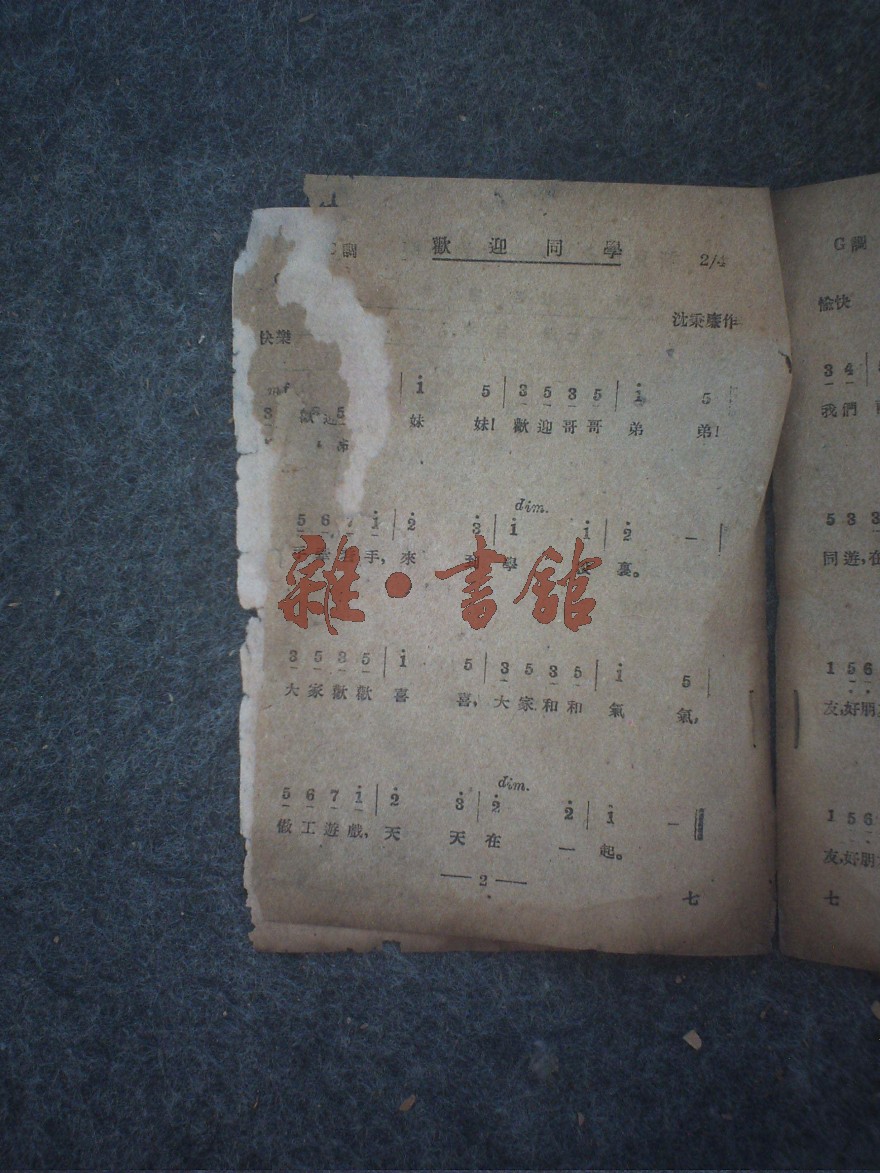 G調 歡迎同學 2/4
快樂 沈秉廉作
mf
i 5 | 3 5 3 5 | i 5
歡迎 妹 妹! 歡迎哥哥 弟 弟!
dim.
5 6 7 i | 2 3 | i i | 2 —
手, 來 到 學 裏。
雜·書舘
3 5 3 5 | i 5 | 3 5 3 5 | i 5 |
大家歡歡 喜 喜, 大家和和 氣 氣,
dim.
5 6 7 i | 2 3 | 2 2 | i —
做工遊戲, 天 天 在 一 起。
— 2 —
七
G調
愉快
3 4
我們
5 3 3
同遊,在
1 5 6
友,好朋
1 5 6
友,好朋
七